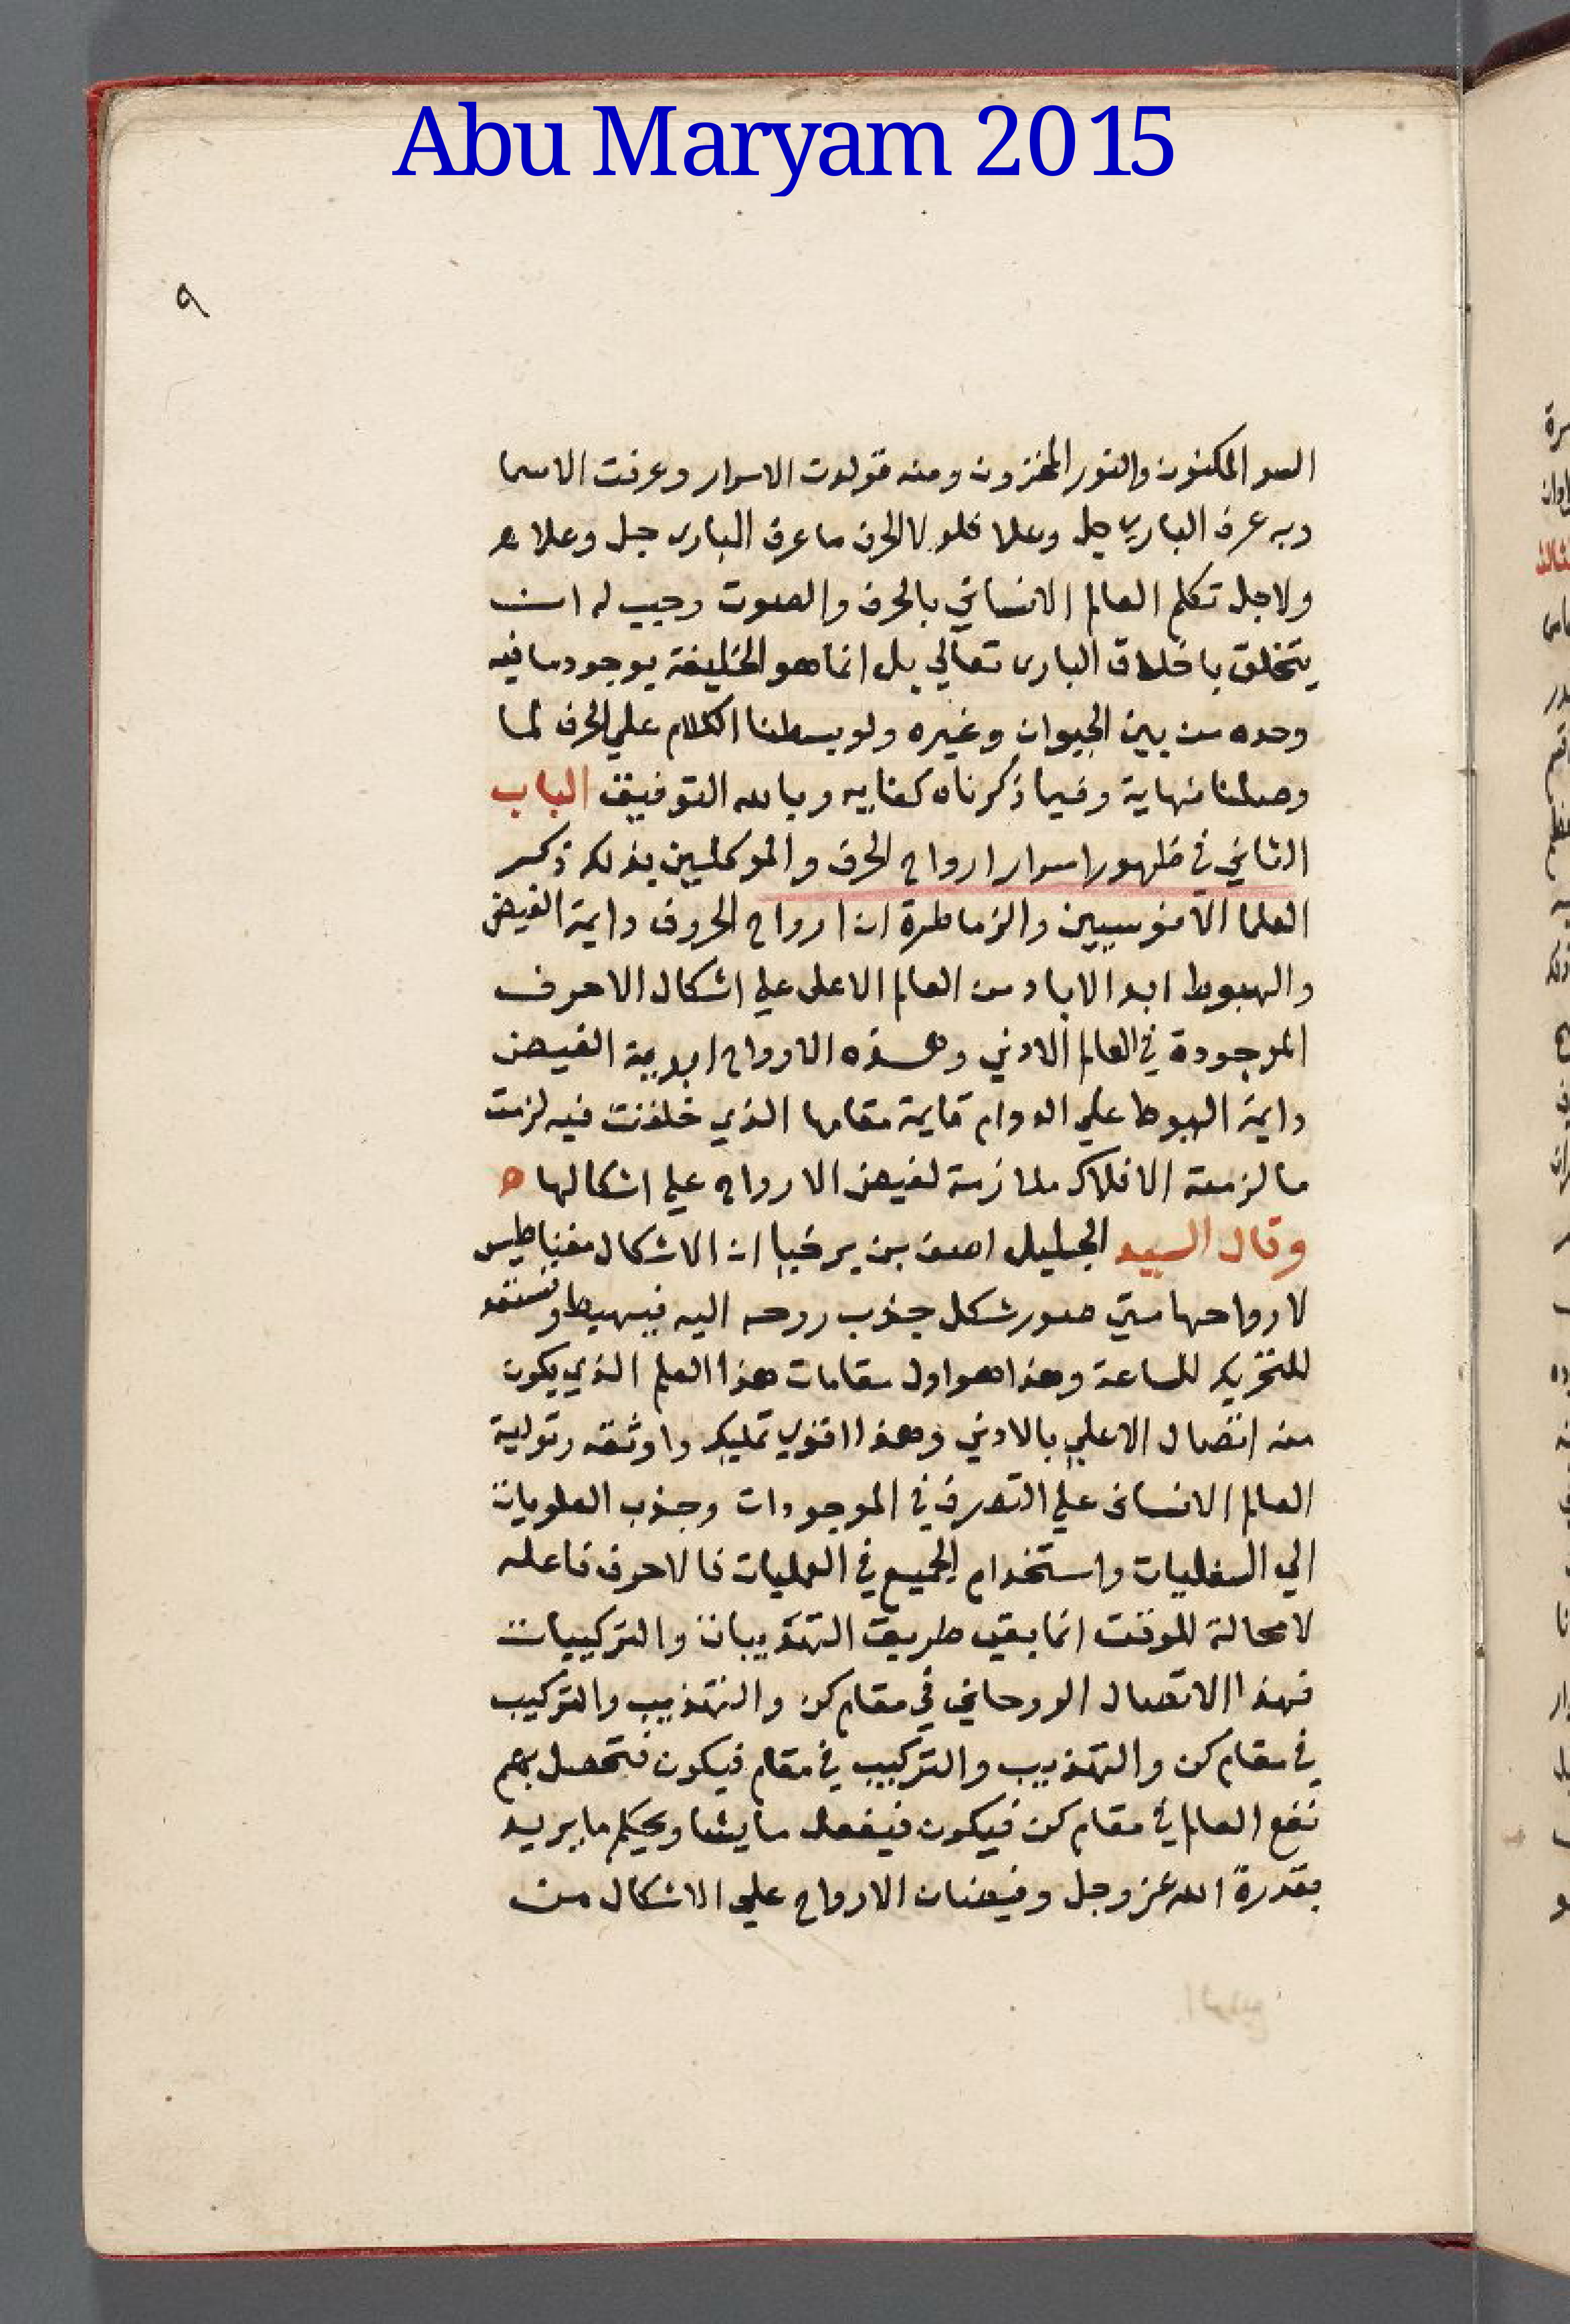 Abu Maryam 2015
٩
السر المكنون والنور المخزون ومنه تولدت الاسرار وعرفت الاسما
وبه عرف الباري جل وعلا فلولا الحرف ما عرف الباري جل وعلا
ولاجل تكلم العالم الانساني بالحرف والصوت وجب له ان
يتخلق باخلاق الباري تعالي بل انما هو الخليفة بوجود ما فيه
وحده من بين الحيوان وغيره ولو بسطنا الكلام علي الحرف لما
وصلنا نهاية وفيما ذكرناه كفايه وبالله التوفيق الباب
الثاني في ظهور اسرار ارواح الحرف والموكلين بذلك ذكر
العلما والزماطرة ان ارواح الحروف دايمة الفيض
والهبوط ابد الاباد من العالم الاعلي علي اشكال الاحرف
الموجودة في العالم الادني وهذه الارواح ابدية الفيض
دايمة الهبوط علي الدوام قايمة مقامها الذي خلقت فيه لزمت
ما لزمته الافلاك ملازمة لفيض الارواح علي اشكالها
وقال السيد الجليل اصف بن برخيا ان الاشكال مغناطيس
لارواحها متي صور شكل جذب روحه اليه فيهبط
للتحريك للساعة وهذا هو اول مقامات هذا العلم الذي يكون
منه اتصال الاعلي بالادني وهذا اقوي تمليك واوثقه وتولية
العالم الانساني علي التصرف في الموجودات وجذب العلويات
الي السفليات واستخدام الجميع في العمليات فالاحرف فاعله
لا محالة للوقت انما بقي طريق التهذيبات والتركيبات
فهذا الاتصال الروحاني في مقام كن والتهذيب والتركيب
في مقام كن والتهذيب والتركيب في مقام فيكون فتحصل بهم
نفع العالم في مقام كن فيكون فيفعل ما يشا ويحكم ما يريد
بقدرة الله عز وجل وفيضان الارواح علي الاشكال من